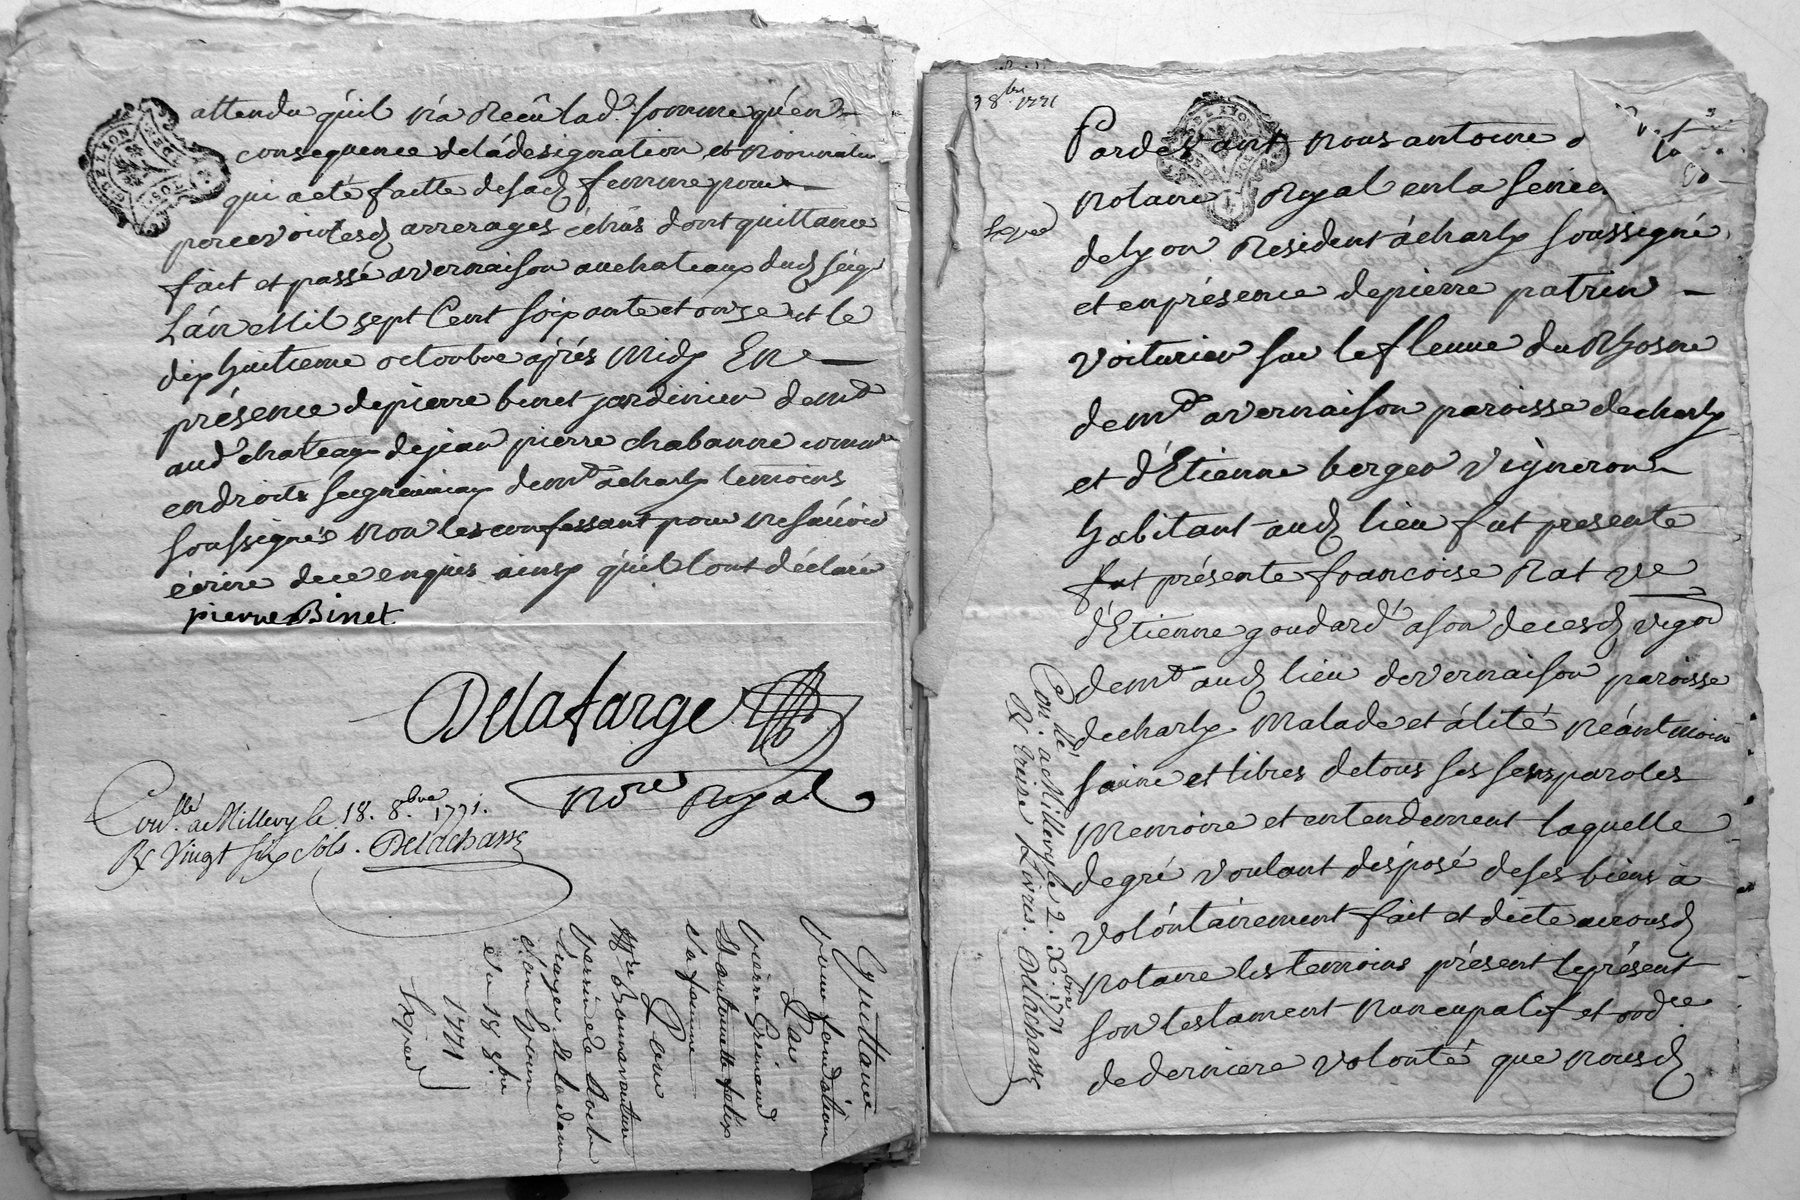 attendu qu'il n'a Reçu lad.e somme qu'en
consequence de la désignation et nominatio
qui a été faitte de sad femme pour
percevoir lesd arrerages échus dont quittance
fait et passé a vernaison au chateaux dud seigr
L'an Mil sept Cent soixante et onze et le
dix huitieme octoubre après Midy En
présence de pierre binet jardinier demt
aud chateaux de jean pierre chabanne comm.re
en droits seigneuriaux demt a charly temoins
soussignés non les confessant pour ne savoir
écrire de ce enquis ainsy qu'il l'ont déclaré
pierre Binet
Delafarge
No.re Royal
Con.llé a Millery le 18. 8.bre 1771.
R Vingt six sols. Delachasse
Quittance
pour fondation
Par
pierre Grimaud
et antoinette felix
sa femme
Pour
Mre Bonnavanture
et la dame
du 18 8.bre
1771
Expéd
8.bre 1771
Expéd
Pardevant Nous antoine
Notaire Royal en la Senec
de lyon Resident à charly soussigné
et en présence de pierre patrin
voiturier sur le fleuve du Rhosne
demt a vernaison paroisse de charly
et d'Etienne berger vigneron
habitant aud lieu fut presente
fut présente francoise Rat vve
d'Etienne goudard a son decesd vigon
demt aud lieu de vernaison paroisse
de charly Malade et alité Néantmoin
saine et libres de tous ses sens paroles
Memoire et entendement laquelle
de gré voulant disposé de ses biens à
volontairement fait et dicte a nousd
notaire les temoins présent le présent
son testament Nuncupatif et ord.ce
de derniere volonté que nousd
Con.llé a Millery le 2. X.bre 1771
R treize Livres. Delachasse